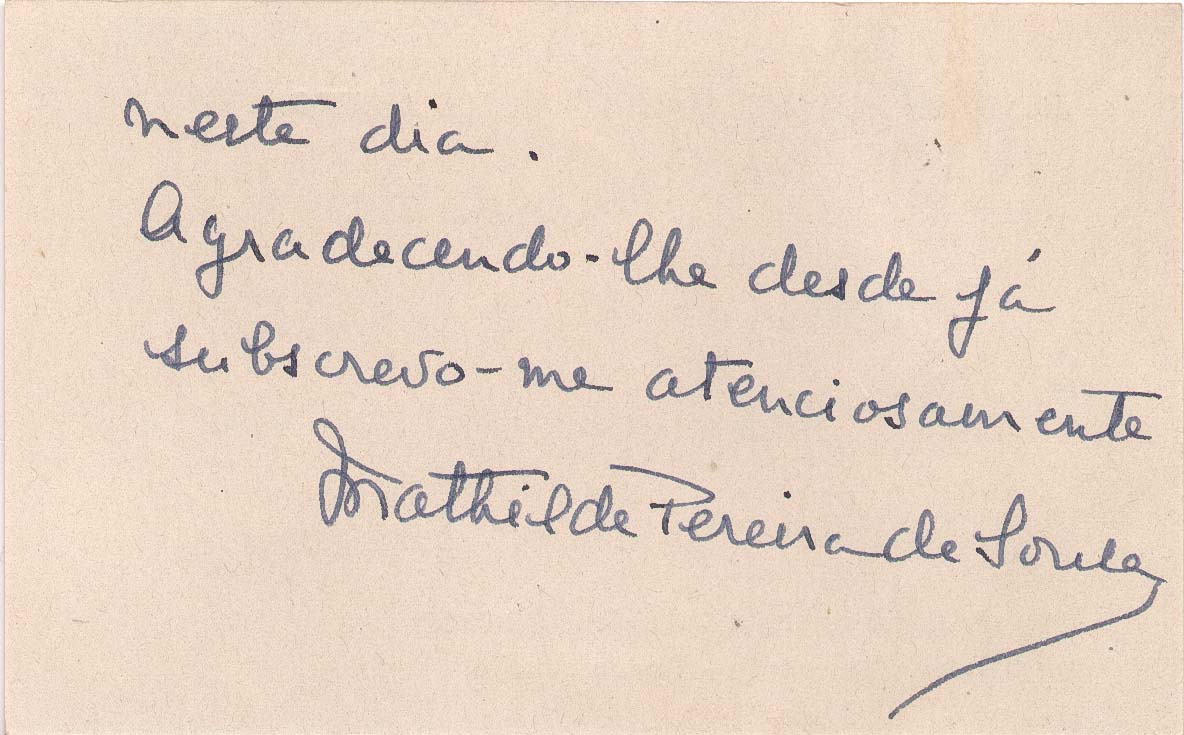 neste dia.
Agradecendo-lhe desde já
subscrevo-me atenciosamente
Mathilde Pereira de Sousa